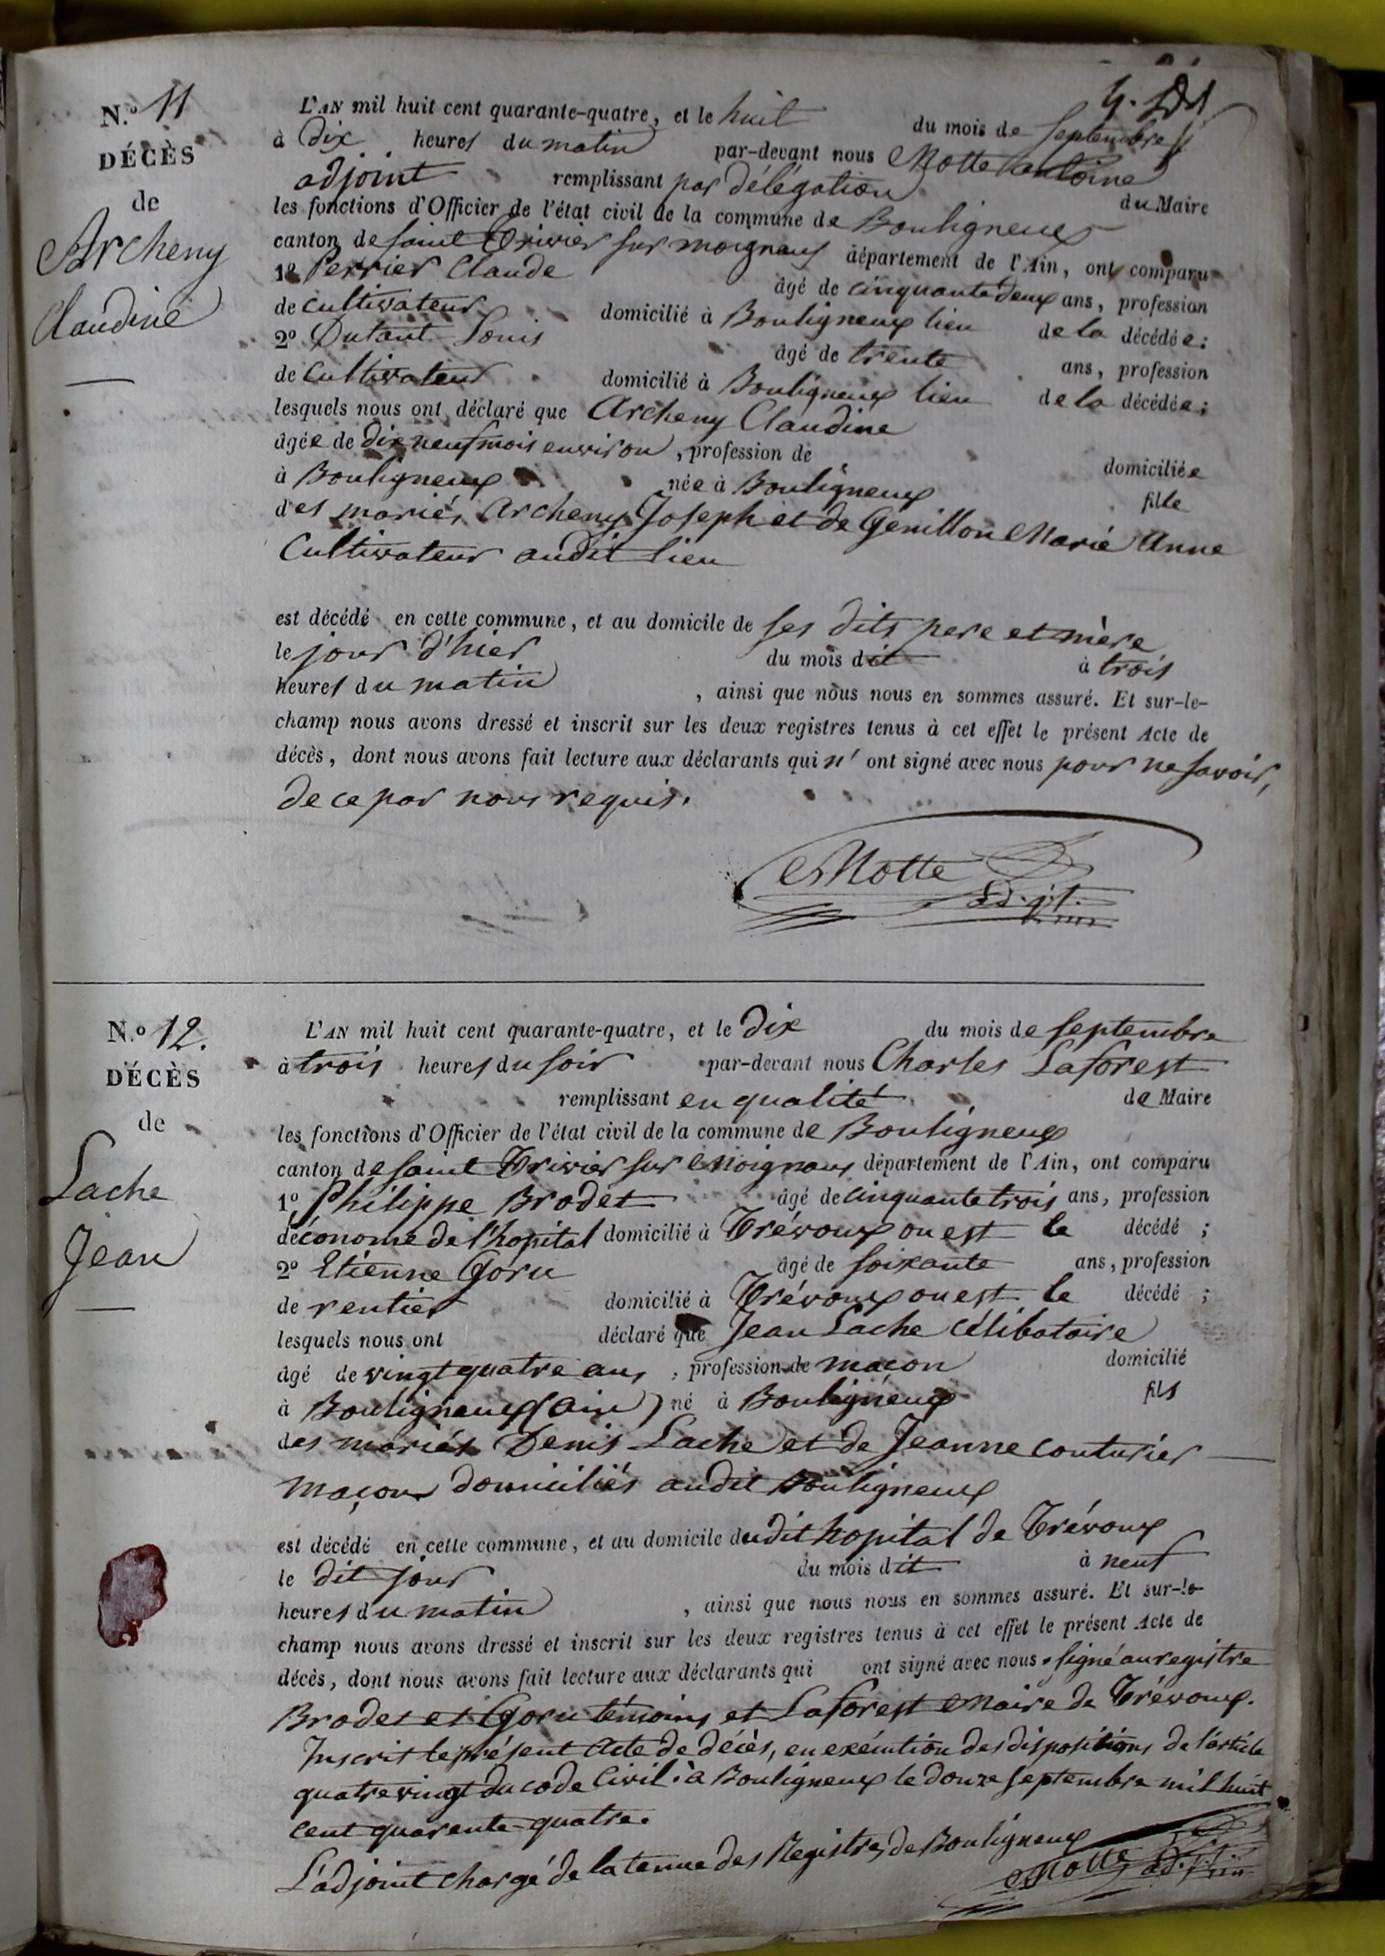 N.º 11
DÉCÈS
de
Archeny
Claudine
L'AN mil huit cent quarante-quatre, et le huit du mois de Septembre
à dix heures du matin par-devant nous Motte antoine
adjoint remplissant par délégation du Maire
les fonctions d'Officier de l'état civil de la commune de Bouligneux
canton de saint Trivier sur moignans département de l'Ain, ont comparu
1º Perrier Claude âgé de cinquante deux ans, profession
de cultivateur domicilié à Bouligneux lieu de la décédée;
2º Dutant Louis âgé de trente ans, profession
de cultivateur domicilié à Bouligneux lieu de la décédée;
lesquels nous ont déclaré que Archeny Claudine
âgée de dix neuf mois environ, profession de domiciliée
à Bouligneux née à Bouligneux fille
des mariés Archeny Joseph et de Genillon Marie Anne
Cultivateur audit lieu
est décédé en cette commune, et au domicile de ses dits pere et mère
le jour d'hier du mois dit à trois
heures du matin, ainsi que nous nous en sommes assuré. Et sur-le-
champ nous avons dressé et inscrit sur les deux registres tenus à cet effet le présent Acte de
décès, dont nous avons fait lecture aux déclarants qui n' ont signé avec nous pour ne savoir,
de ce par nous requis.
Motte
adjt.
N.º 12.
DÉCÈS
de
Lache
Jean
L'AN mil huit cent quarante-quatre, et le dix du mois de septembre
à trois heures du soir par-devant nous Charles Laforest
remplissant en qualité de Maire
les fonctions d'Officier de l'état civil de la commune de Bouligneux
canton de saint Trivier sur Moignans département de l'Ain, ont comparu
1º Philippe Brodet âgé de cinquante trois ans, profession
d'économe de l'hopital domicilié à Trévoux ou est le décédé;
2º Etienne Goru âgé de soixante ans, profession
de rentier domicilié à Trévoux ou est le décédé;
lesquels nous ont déclaré que Jean Lache célibataire
âgé de vingt quatre ans, profession de maçon domicilié
à Bouligneux (ain) né à Bouligneux fils
des mariés Denis Lache et de Jeanne couturier
maçons domiciliés audit Bouligneux
est décédé en cette commune, et au domicile dudit hopital de Trévoux
le dit jour du mois dit à neuf
heures du matin, ainsi que nous nous en sommes assuré. Et sur-le-
champ nous avons dressé et inscrit sur les deux registres tenus à cet effet le présent Acte de
décès, dont nous avons fait lecture aux déclarants qui ont signé avec nous. signé au registre
Brodet et Goru témoins et Laforest Maire de Trévoux.
Inscrit le présent acte de décès, en exécution des dispositions de l'article
quatre vingt du code Civil. à Bouligneux le douze septembre mil huit
cent quarente quatre.
L'adjoint chargé de la tenue des Registres de Bouligneux
Motte adjt.